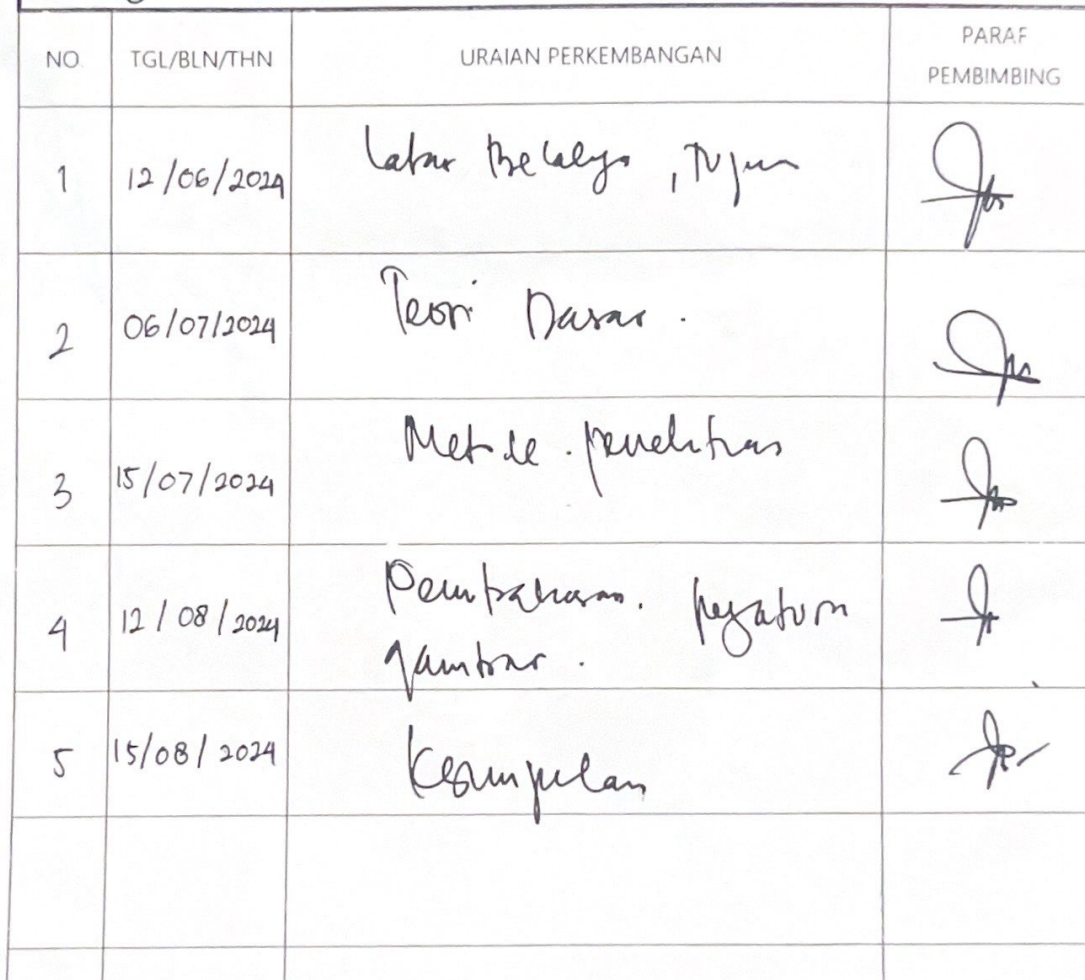 NO. TGL/BLN/THN URAIAN PERKEMBANGAN PARAF PEMBIMBING
1 12/06/2024 Latar Belakang, Tujuan
2 06/07/2024 Teori Dasar.
3 15/07/2024 Metode penelitian
4 12/08/2024 Pembahasan.
gambar.
5 15/08/2024 Kesimpulan